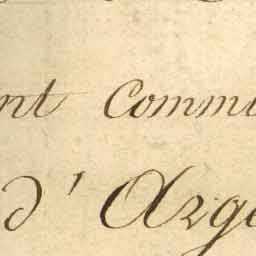 nt Commu
d' Arge